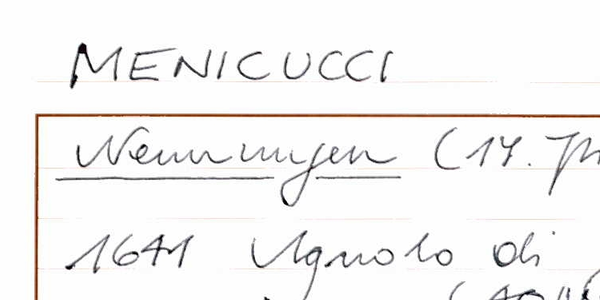 MENICUCCI
Nennungen (17. Jh
1641 Agnolo di